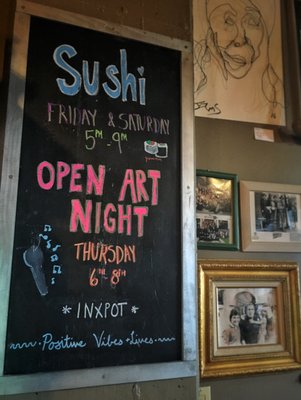 Sushi
FRIDAY & SATURDAY
5PM - 9PM
OPEN ART
NIGHT
THURSDAY
6PM 8PM
* INXPOT *
Positive Vibes + Lives